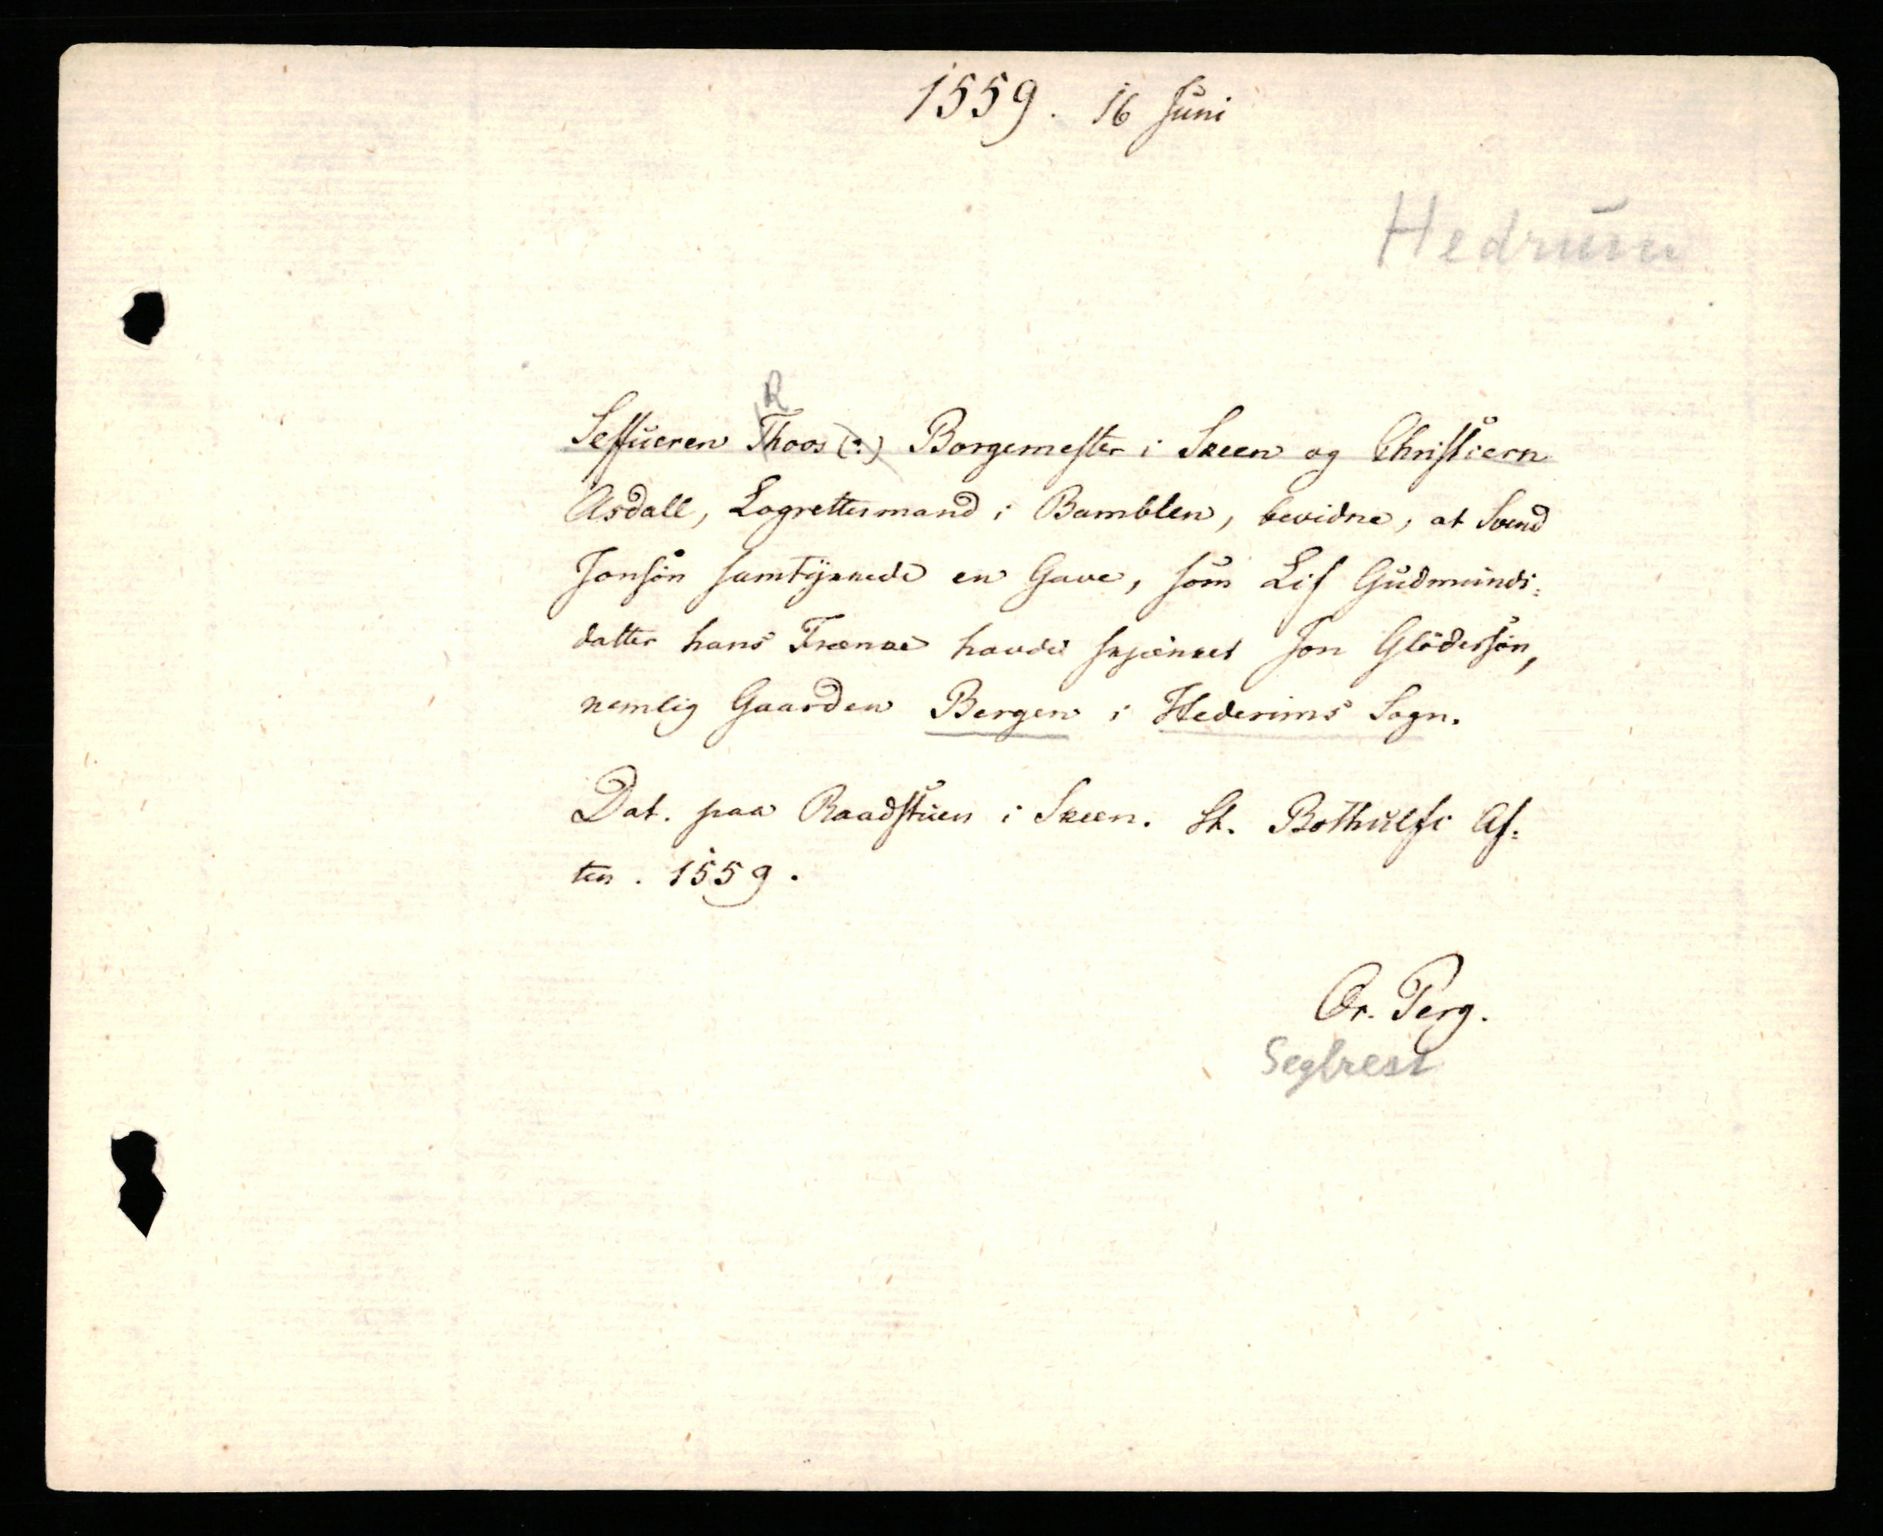 1559. 16 Juni
Hedrum
R
Seffueren Thoos (?) Borgemester i Skeen og Christiern
Asdall, Lagrettesmand i Bamblen, bevidne, at Svend
Jonsön samtykkede en Gave, som Lif Gudmunds-
datter hans Frænke havde skjænket Jon Glödersön,
nemlig Gaarden Bergen i Hederims Sogn.
Dat. paa Raadstuen i Skeen. St. Bothulfs Af-
ten. 1559.
Or. Perg.
Seglrest